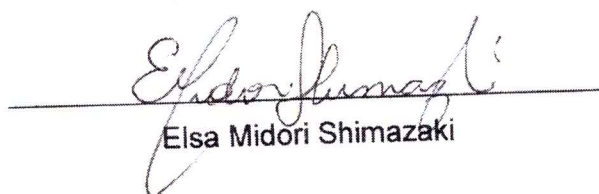 Elsa Midori Shimazaki